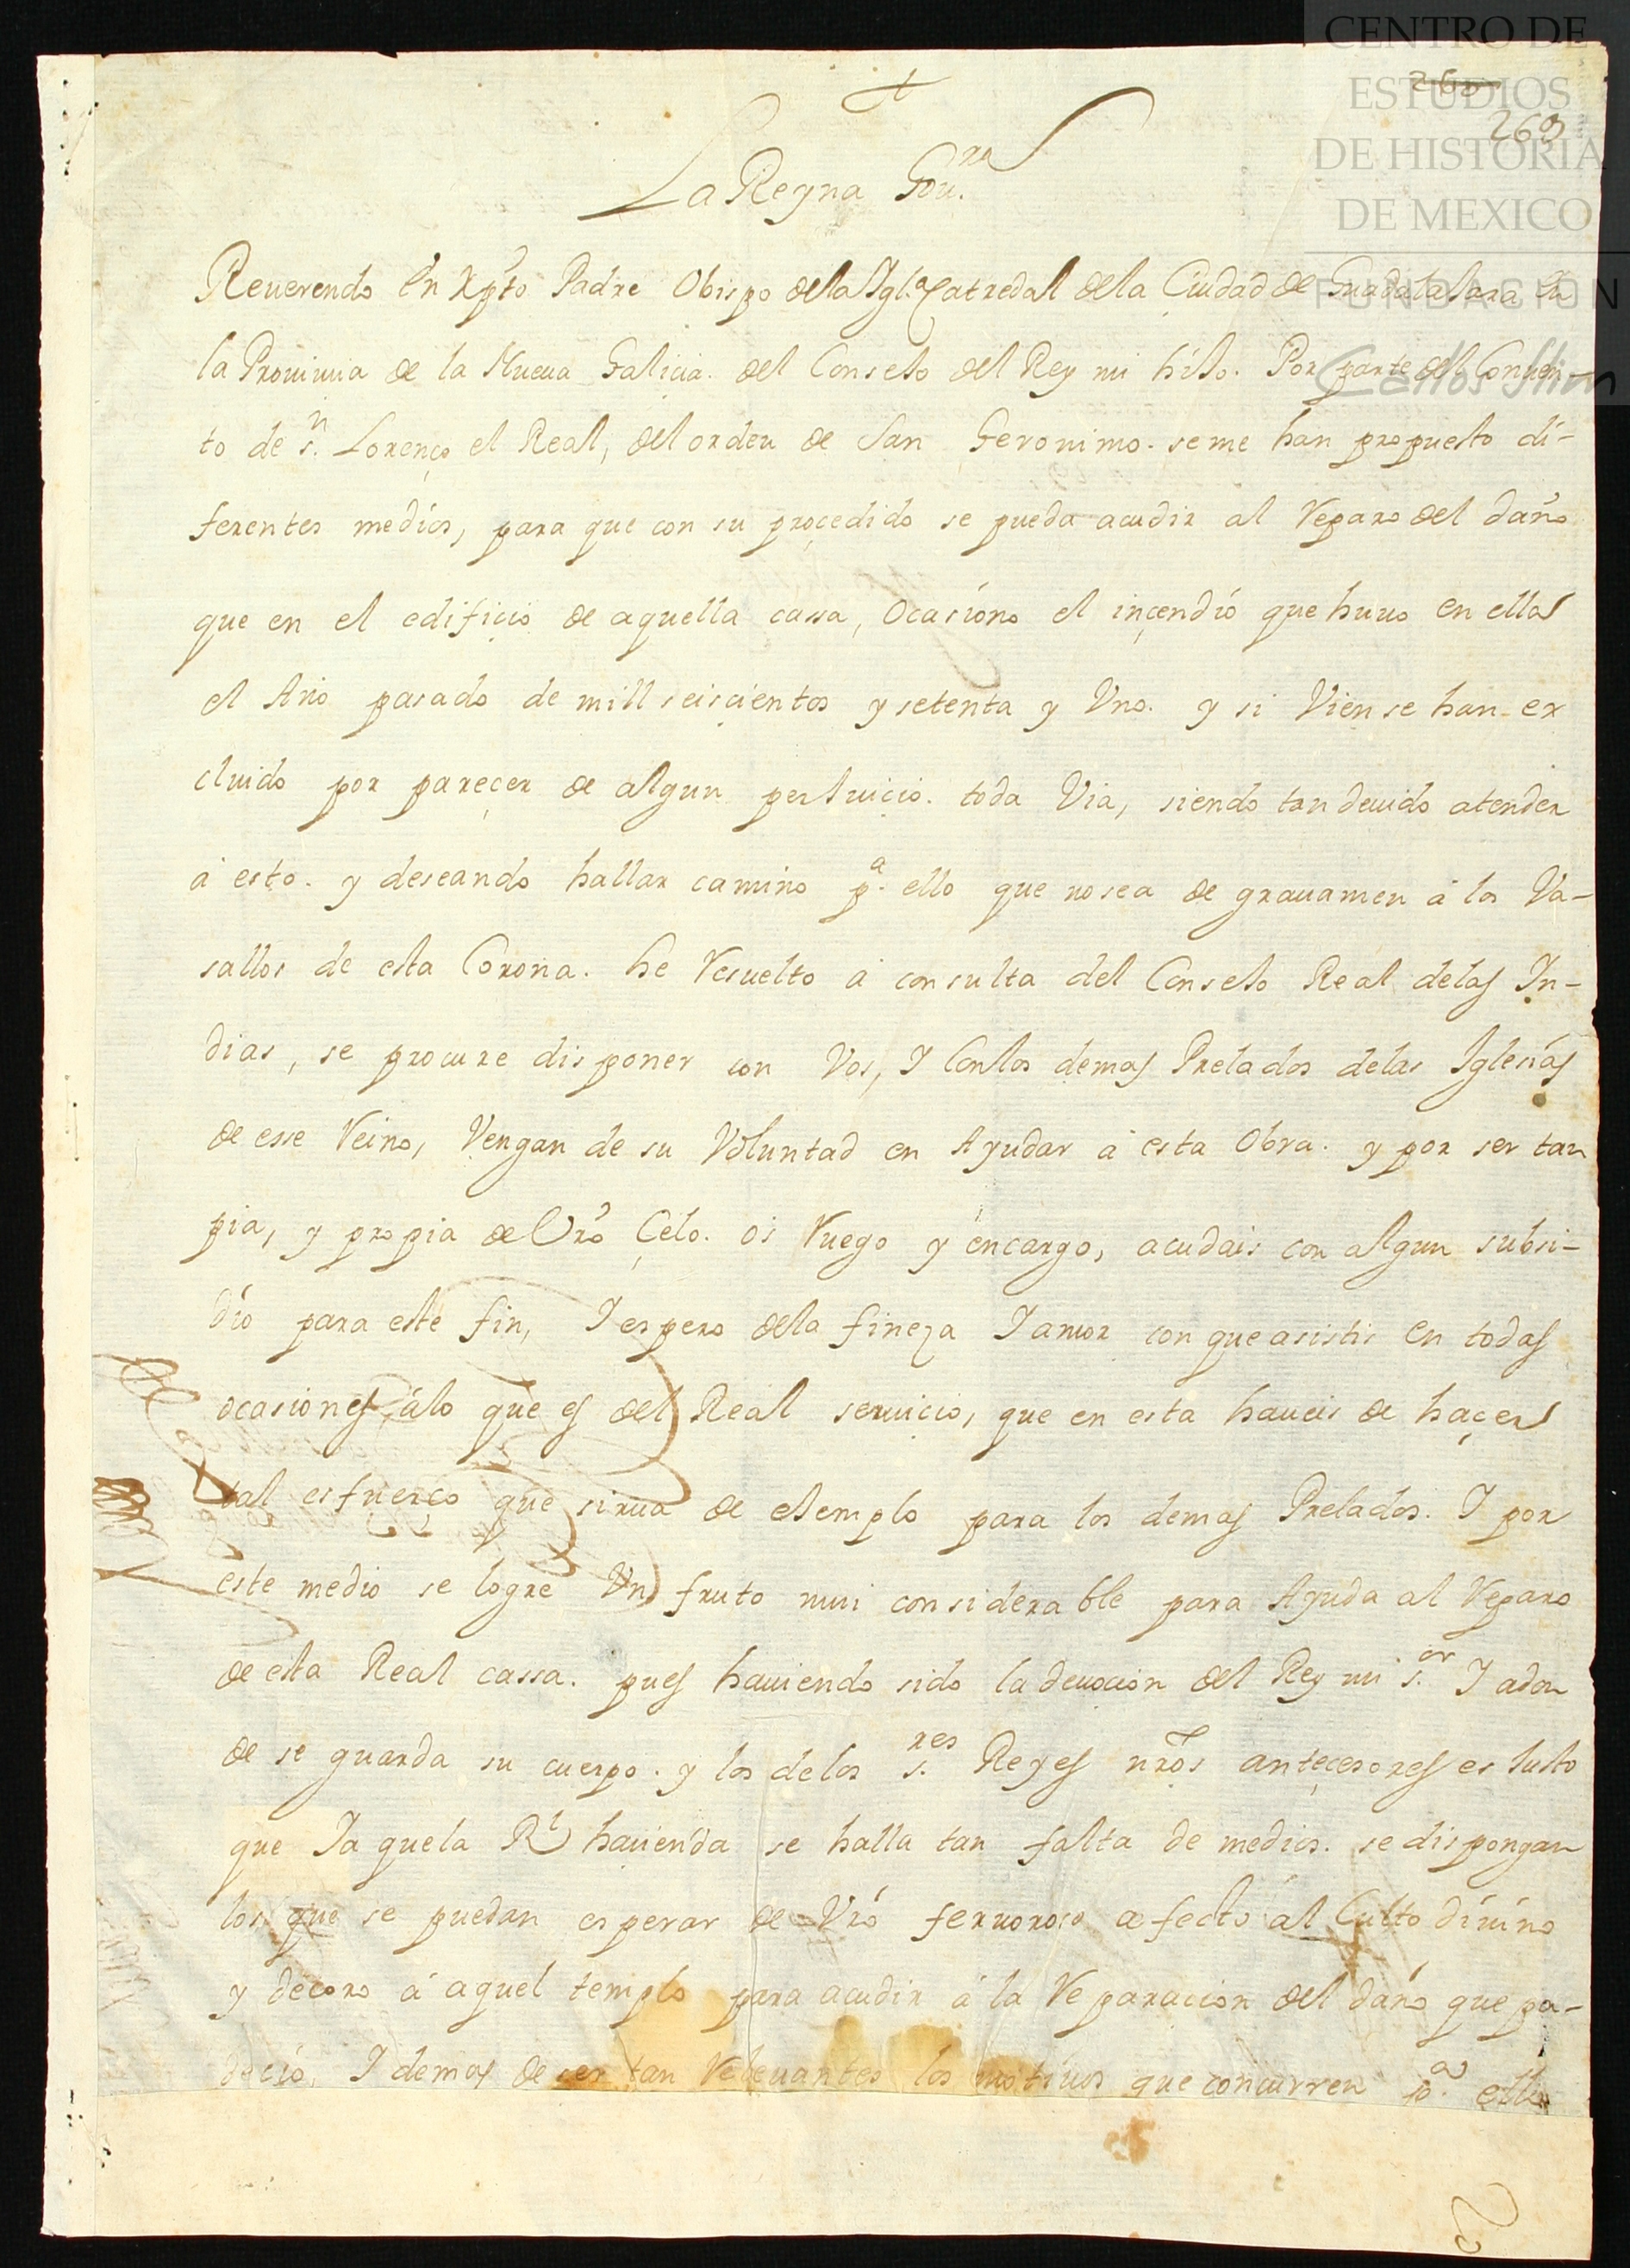 CENTRO DE
ESTUDIOS
DE HISTORIA
DE MEXICO
FUNDACION
Carlos Slim
260
269
La Reyna Gou.ra
Reuerendo en Xpto Padre Obispo dela Igl.a Catredal dela Ciudad de Guadalaxara en
la Prouincia de la Nueua Galicia. del Conseio del Rey mi hiio. Por parte del Conuen-
to de s.n Lorenço el Real, del orden de San Geronimo. seme han propuesto di-
ferentes medios, para que con su proçedido se pueda acudir al Reparo del daño
que en el edificio de aquella cassa, Ocasiono el inçendio que huuo en ella
el Año pasado de mill seisçientos y setenta y Vno. y si Vien se han ex
cluido por pareçer de algun periuicio. toda Via, siendo tan deuido atender
á esto. y deseando hallar camino p.a ello que no sea de grauamen á los Va-
sallos de esta Corona. he Resuelto á consulta del Conseio Real delas In-
dias, se procure disponer con Vos, I Conlos demas Prelados delas Iglesias
de esse Reino, Vengan de su Voluntad en Ayudar á esta Obra. y por ser tan
pia, y propia de Vrõ Çelo. os Ruego y encargo, acudais con algun subsi-
dio para este fin, I espero dela fineza I amor con que asistis en todas
ocasiones, álo que es del Real seruicio, que en esta haueis de haçer
tal esfuerço que sirua de eiemplo para los demas Prelados. I por
este medio se logre Vn fruto mui considerable para Ayuda al Reparo
de esta Real cassa. pues hauiendo sido la deuocion del Rey mi s.or I adon
de se guarda su cuerpo. y los delos s.res Reyes nrõs anteçesores es iusto
que Ia quela Rl hacienda se halla tan falta de medios. se dispongan
los que se puedan esperar de Vrõ feruoroso afecto al Culto diuino
y decoro á aquel templo para acudir á la Reparacion del daño que pa-
deció, I demas de ser tan Releuantes los motiuos que concurren p.a ello